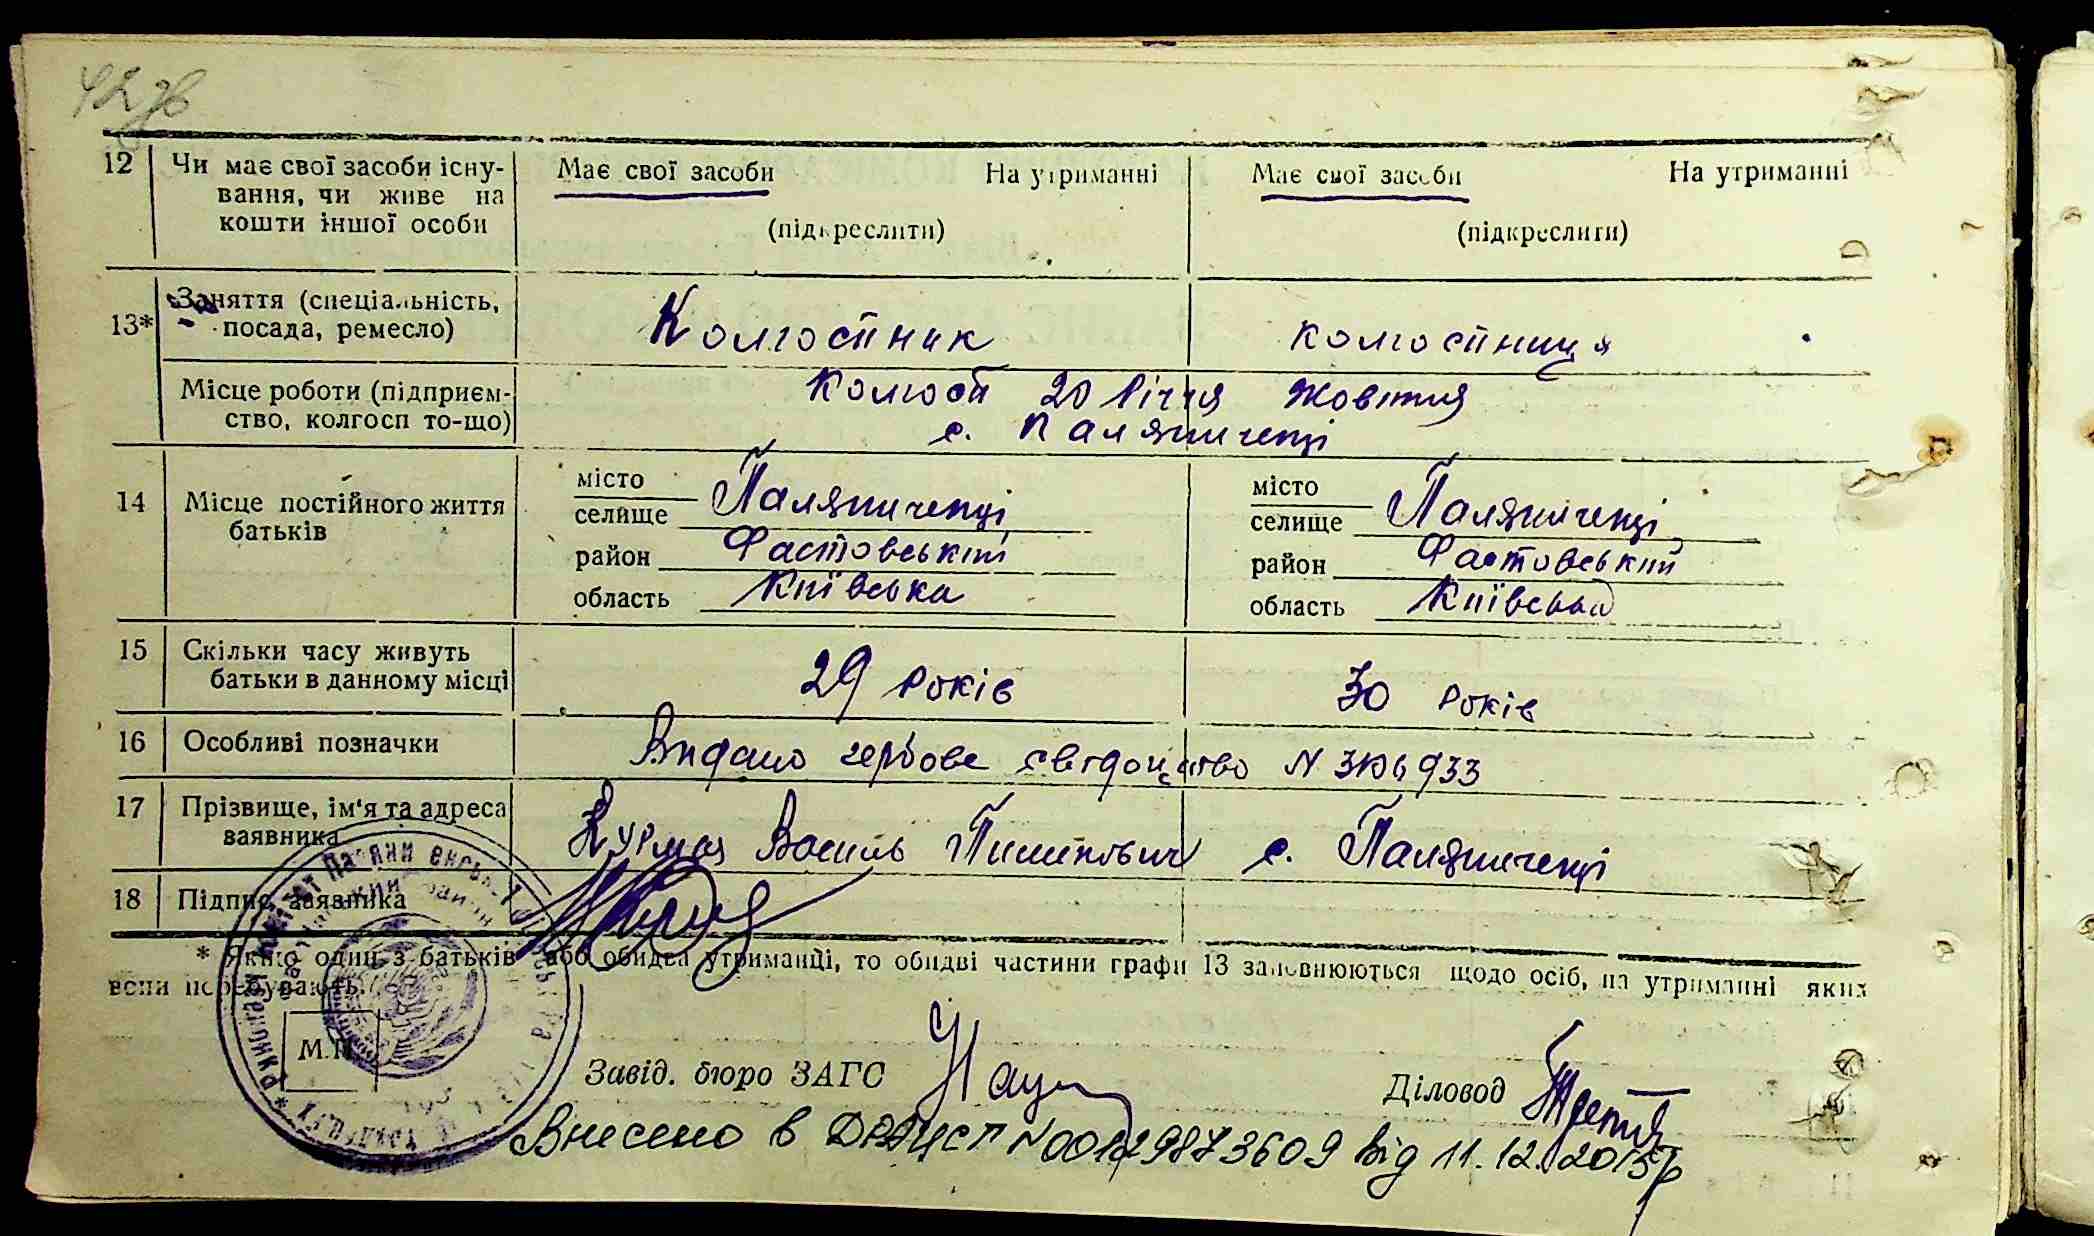 42 зв
12 Чи має свої засоби існу- Має свої засоби На утриманні Має свої засоби На утриманні
вання, чи живе на
кошти іншої особи (підкреслити) (підкреслити)
13* Заняття (спеціальність, Колгоспник колгоспниця
посада, ремесло)
Місце роботи (підприєм- Колгосп 20 річчя Жовтня
ство, колгосп то-що) с. Паляниченці
14 Місце постійного життя місто місто
батьків селище Паляниченці селище Паляниченці
район Фастовський район Фастовський
область Київська область Київська
15 Скільки часу живуть 29 років 30 років
батьки в данному місці
16 Особливі позначки Видано гербове свідоцтво N
17 Прізвище, ім'я та адреса Василь Пилипович с. Паляниченці
заявника
18 Підпис заявника
* Якщо один з батьків або обидва утриманці, то обидві частини графи 13 заповнюються щодо осіб, на утриманні яких
вони перебувають.
М.П.
Завід. бюро ЗАГС Діловод
Внесено в ДРАЦСГ N00129873609 від 11.12.2015р